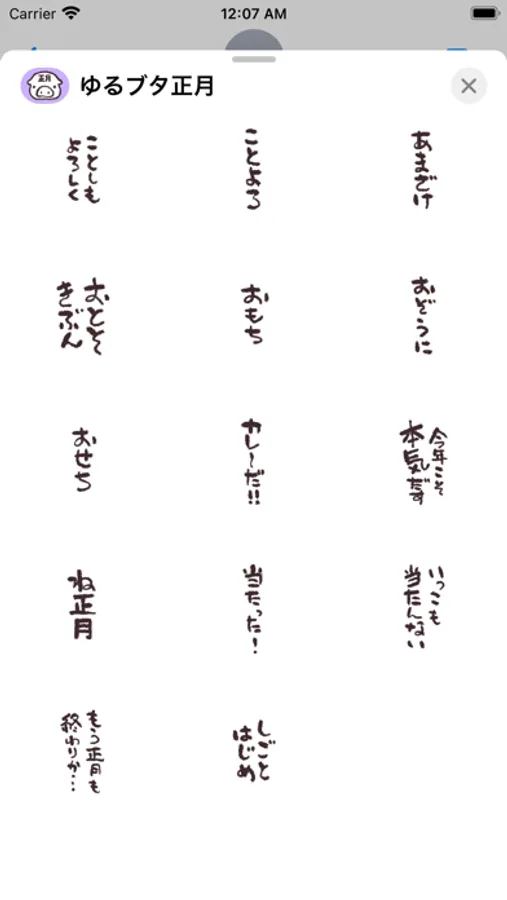 Carrier
12:07 AM
正月
ゆるブタ正月
ことしも
よろしく
ことよろ
あまざけ
おとそ
きぶん
おもち
おぞうに
おせち
カレ〜だ!!
今年こそ
本気だす
ね正月
当たった!
いっこも
当たんない
もう正月も
終わりか…
しごと
はじめ